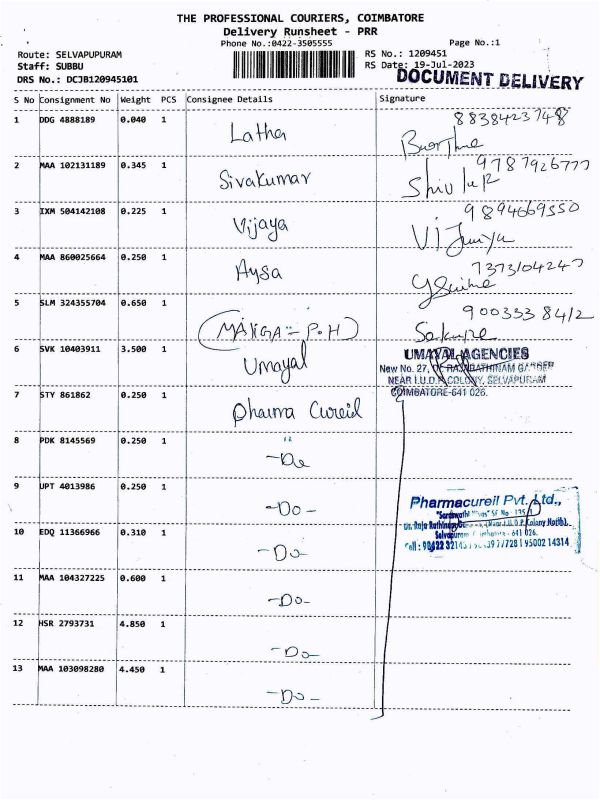 THE PROFESSIONAL COURIERS, COIMBATORE
Delivery Runsheet - PRR
Phone No.:0422-3505555 Page No.:1
Route: SELVAPUPURAM RS No.: 1209451
Staff: SUBBU RS Date: 19-Jul-2023
DRS No.: DCJB120945101 DOCUMENT DELIVERY
S No Consignment No Weight PCS Consignee Details Signature
1 DDG 4888189 0.040 1 Latha 8838423748
2 MAA 102131189 0.345 1 Sivakumar 9787926777
3 IXM 504142108 0.225 1 Vijaya 9894669550
4 MAA 860025664 0.250 1 Aysa 7373104247
5 SLM 324355704 0.650 1 (MANGA - P.H) 9003338412
6 SVK 10403911 3.500 1 Umayal UMAYAL AGENCIES
New No. 27,
NEAR I.U.D.P. COLONY, SELVAPURAM
COIMBATORE-641 026.
7 STY 861862 0.250 1 Pharma Cureil
8 PDK 8145569 0.250 1 -Do-
9 UPT 4013986 0.250 1 -Do-
Pharmacureil Pvt. Ltd.,
10 EDQ 11366966 0.310 1 -Do-
11 MAA 104327225 0.600 1 -Do-
12 HSR 2793731 4.850 1 -Do-
13 MAA 103098280 4.450 1 -Do-